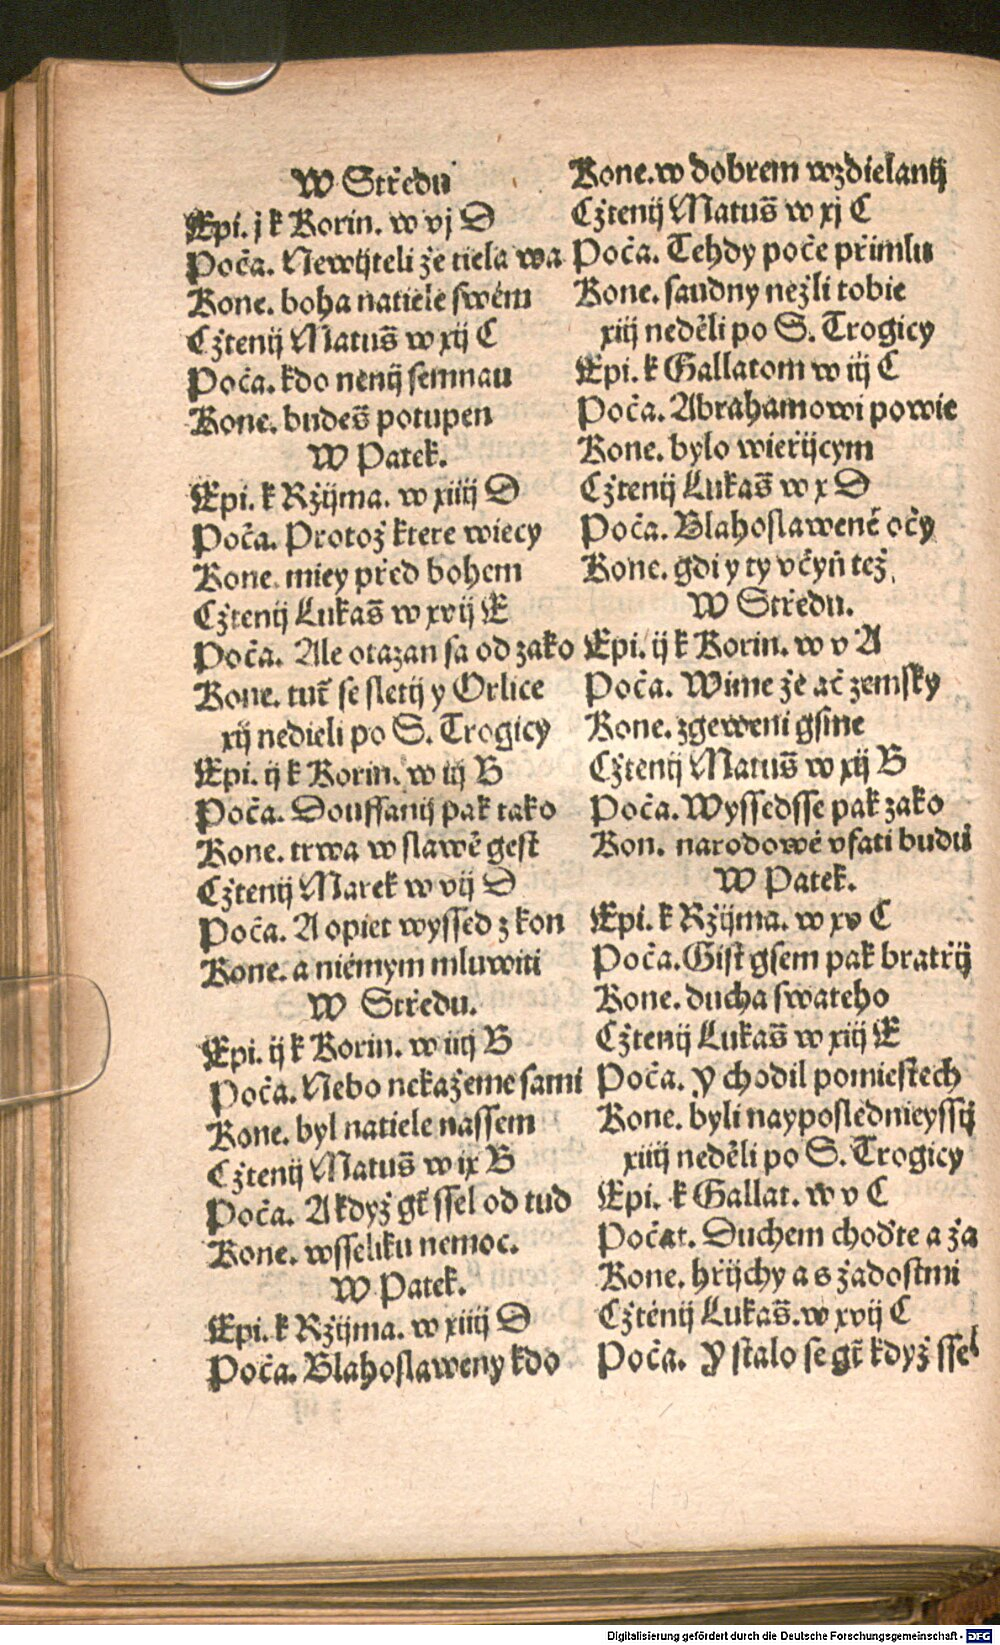 W Středu
Epi. j k Korin. w vj D
Poča. Newijteli že tiela wa
Kone. boha natiele swém
Cžtenij Matuš w xij C
Poča. kdo nenij semnau
Kone. budeš potupen
W Patek.
Epi. k Ržijma. w xiiij D
Poča. Protož ktere wiecy
Kone. miey před bohem
Cžtenij Lukaš w xvij E
Poča. Ale otazan sa od zako
Kone. tut̃ se sletij y Orlice
xij nedieli po S. Trogicy
Epi. ij k Korin. w iij B
Poča. Douffanij pak tako
Kone. trwa w slawě gest
Cžtenij Marek w vij D
Poča. A opiet wyssed z kon
Kone. a niémym mluwiti
W Středu.
Epi. ij k Korin. w iiij B
Poča. Nebo nekažeme sami
Kone. byl natiele nassem
Cžtenij Matuš w ix B
Poča. A když gt̃ ssel od tud
Kone. wsseliku nemoc.
W Patek.
Epi. k Ržijma. w xiiij D
Poča. Blahoslaweny kdo
Kone. w dobrem wzdielanij
Cžtenij Matuš w xj C
Poča. Tehdy poče přimlu
Kone. saudny nežli tobie
xiij neděli po S. Trogicy
Epi. k Gallatom w iij C
Poča. Abrahamowi powie
Kone. bylo wieřijcym
Cžtenij Lukaš w x D
Poča. Blahoslawené očy
Kone. gdi y ty včyň tež
W Středu.
Epi. ij k Korin. w v A
Poča. Wime že ač zemsky
Kone. zgeweni gsme
Cžtenij Matuš w xij B
Poča. Wyssedsse pak zako
Kon. narodowé vfati budů
W Patek.
Epi. k Ržijma. w xv C
Poča. Gist gsem pak bratřij
Kone. ducha swateho
Cžtenij Lukaš w xiij E
Poča. Y chodil pomiestech
Kone. byli nayposlednieyssij
xiiij neděli po S. Trogicy
Epi. k Gallat. w v C
Počat. Duchem choďte a ža
Kone. hřijchy a s žadostmi
Cžténij Lukaš. w xvij C
Poča. Y stalo se gt̃ když ssel
Digitalisierung gefördert durch die Deutsche Forschungsgemeinschaft - DFG